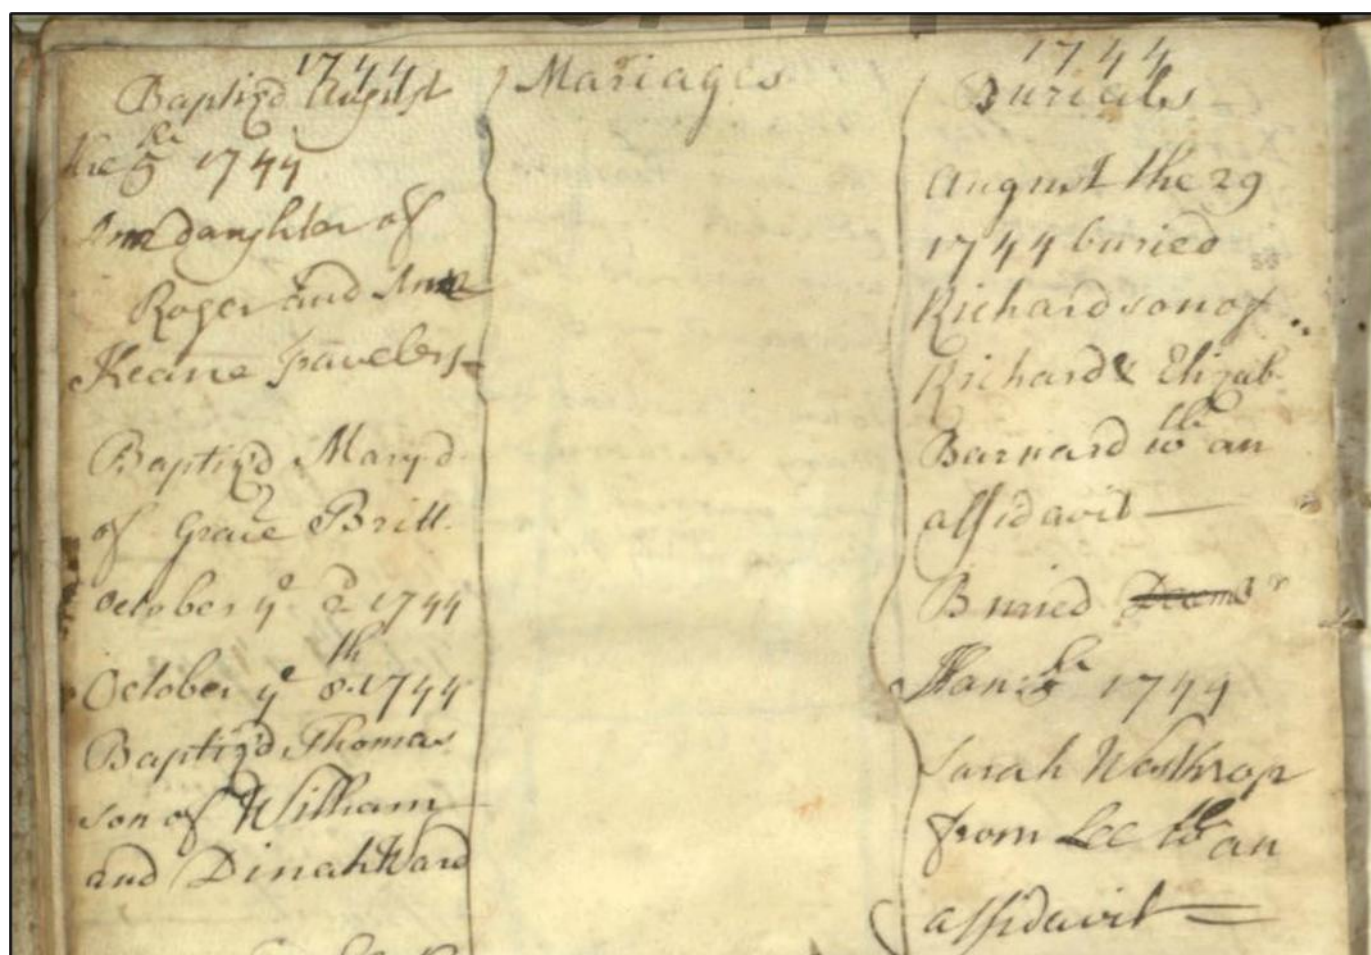 1744
Baptiz'd August
the 5th 1744
Ann daughter of
Roger and Ann
Keane Travelers
Baptiz'd Mary d
of Grace Britt.
October ye 2d 1744
October ye 8th 1744
Baptiz'd Thomas
son of William
and Dinah Ward
Mariages
1744
Burials
August the 29
1744 buried
Richard son of
Richard & Elizab
Barnard wth an
affidavit
Buried
1744
Sarah Westhrop
from Lee wth an
affidavit